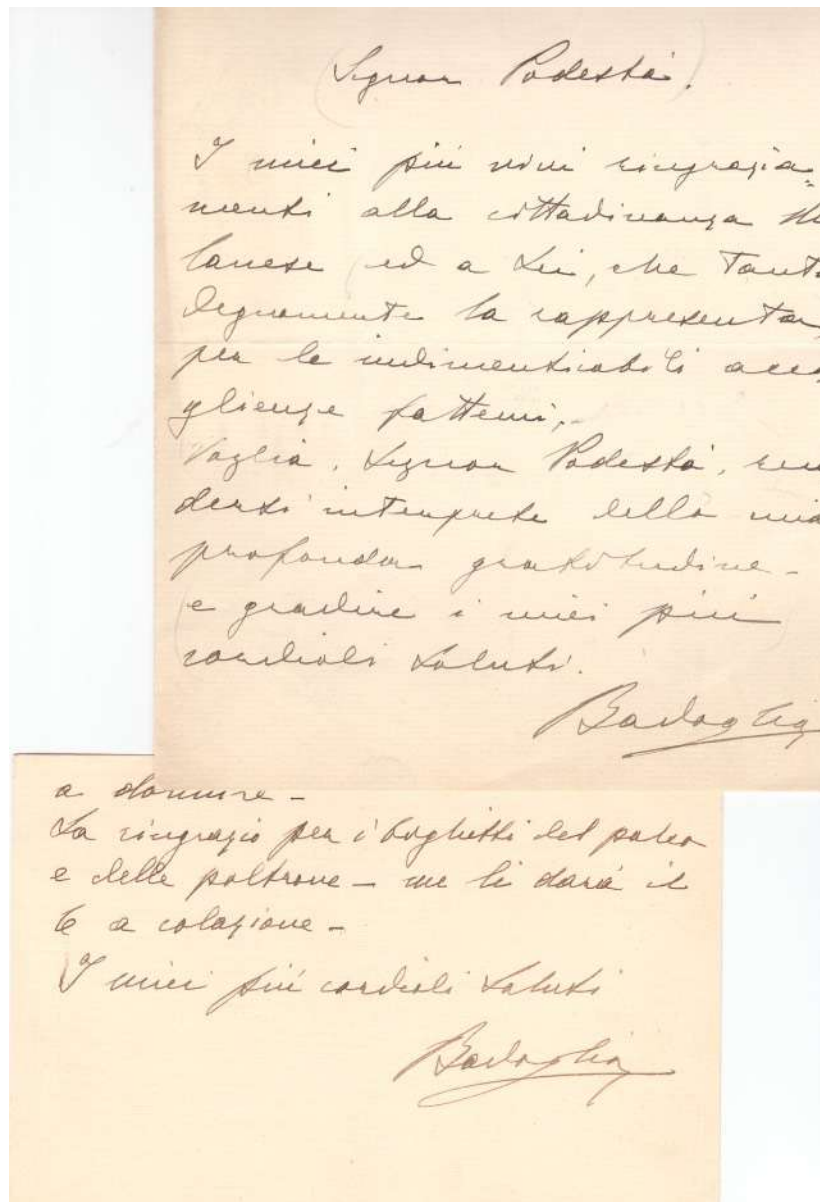 Signor Podestà.
I miei più vivi ringrazia=
menti alla cittadinanza Mi
lanese ed a Lei, che tant
degnamente la rappresenta,
per le indimenticabili acco
glienze fattemi,
Voglia, Signor Podestà, ren
dersi interprete della mia
profonda gratitudine -
e gradire i miei più
cordiali saluti.
Badoglio
a dormire -
La ringrazio per i biglietti del palco
e delle poltrone - me li darà il
6 a colazione -
I miei più cordiali saluti
Badoglio